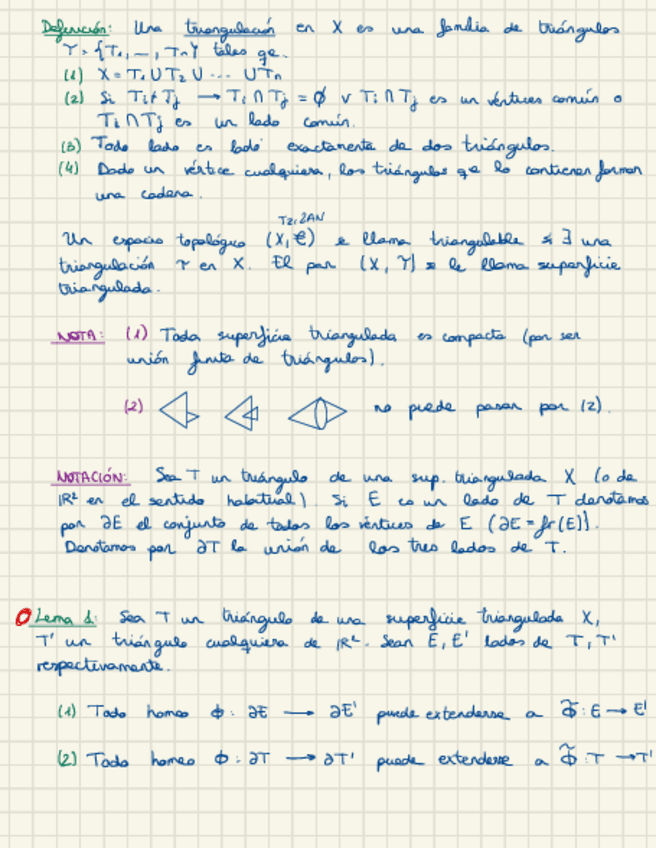 Definición: Una triangulación en X es una familia de triángulos
Υ = {T₁, —, Tₙ} tales qe.
(1) X = T₁ ∪ T₂ ∪ ... ∪ Tₙ
(2) Si Ti ≠ Tj → Ti ∩ Tj = ∅ v Ti ∩ Tj es un vértices común o
Ti ∩ Tj es un lado común.
(3) Todo lado es lado exactamente de dos triángulos.
(4) Dado un vértice cualquiera, los triángulos qe lo contienen forman
una cadena.
T2, 2AN
Un espacio topológico (X, ) se llama triangulable si ∃ una
triangulación Υ en X. El par (X, Υ) se le llama superficie
triangulada.
NOTA: (1) Toda superficie triangulada es compacta (por ser
unión finita de triángulos).
(2) no puede pasar por (2).
NOTACIÓN: Sea T un triángulo de una sup. triangulada X (o de
ℝ² en el sentido habitual) Si E es un lado de T denotamos
por ∂E el conjunto de todos los vértices de E (∂E = fr(E)).
Denotamos por ∂T la unión de los tres lados de T.
Lema 1: Sea T un triángulo de una superficie triangulada X,
T' un triángulo cualquiera de ℝ². Sean E, E' lados de T, T'
respectivamente.
(1) Todo homeo ϕ: ∂E → ∂E' puede extenderse a ϕ̃: E → E'
(2) Todo homeo ϕ: ∂T → ∂T' puede extenderse a ϕ̃: T → T'